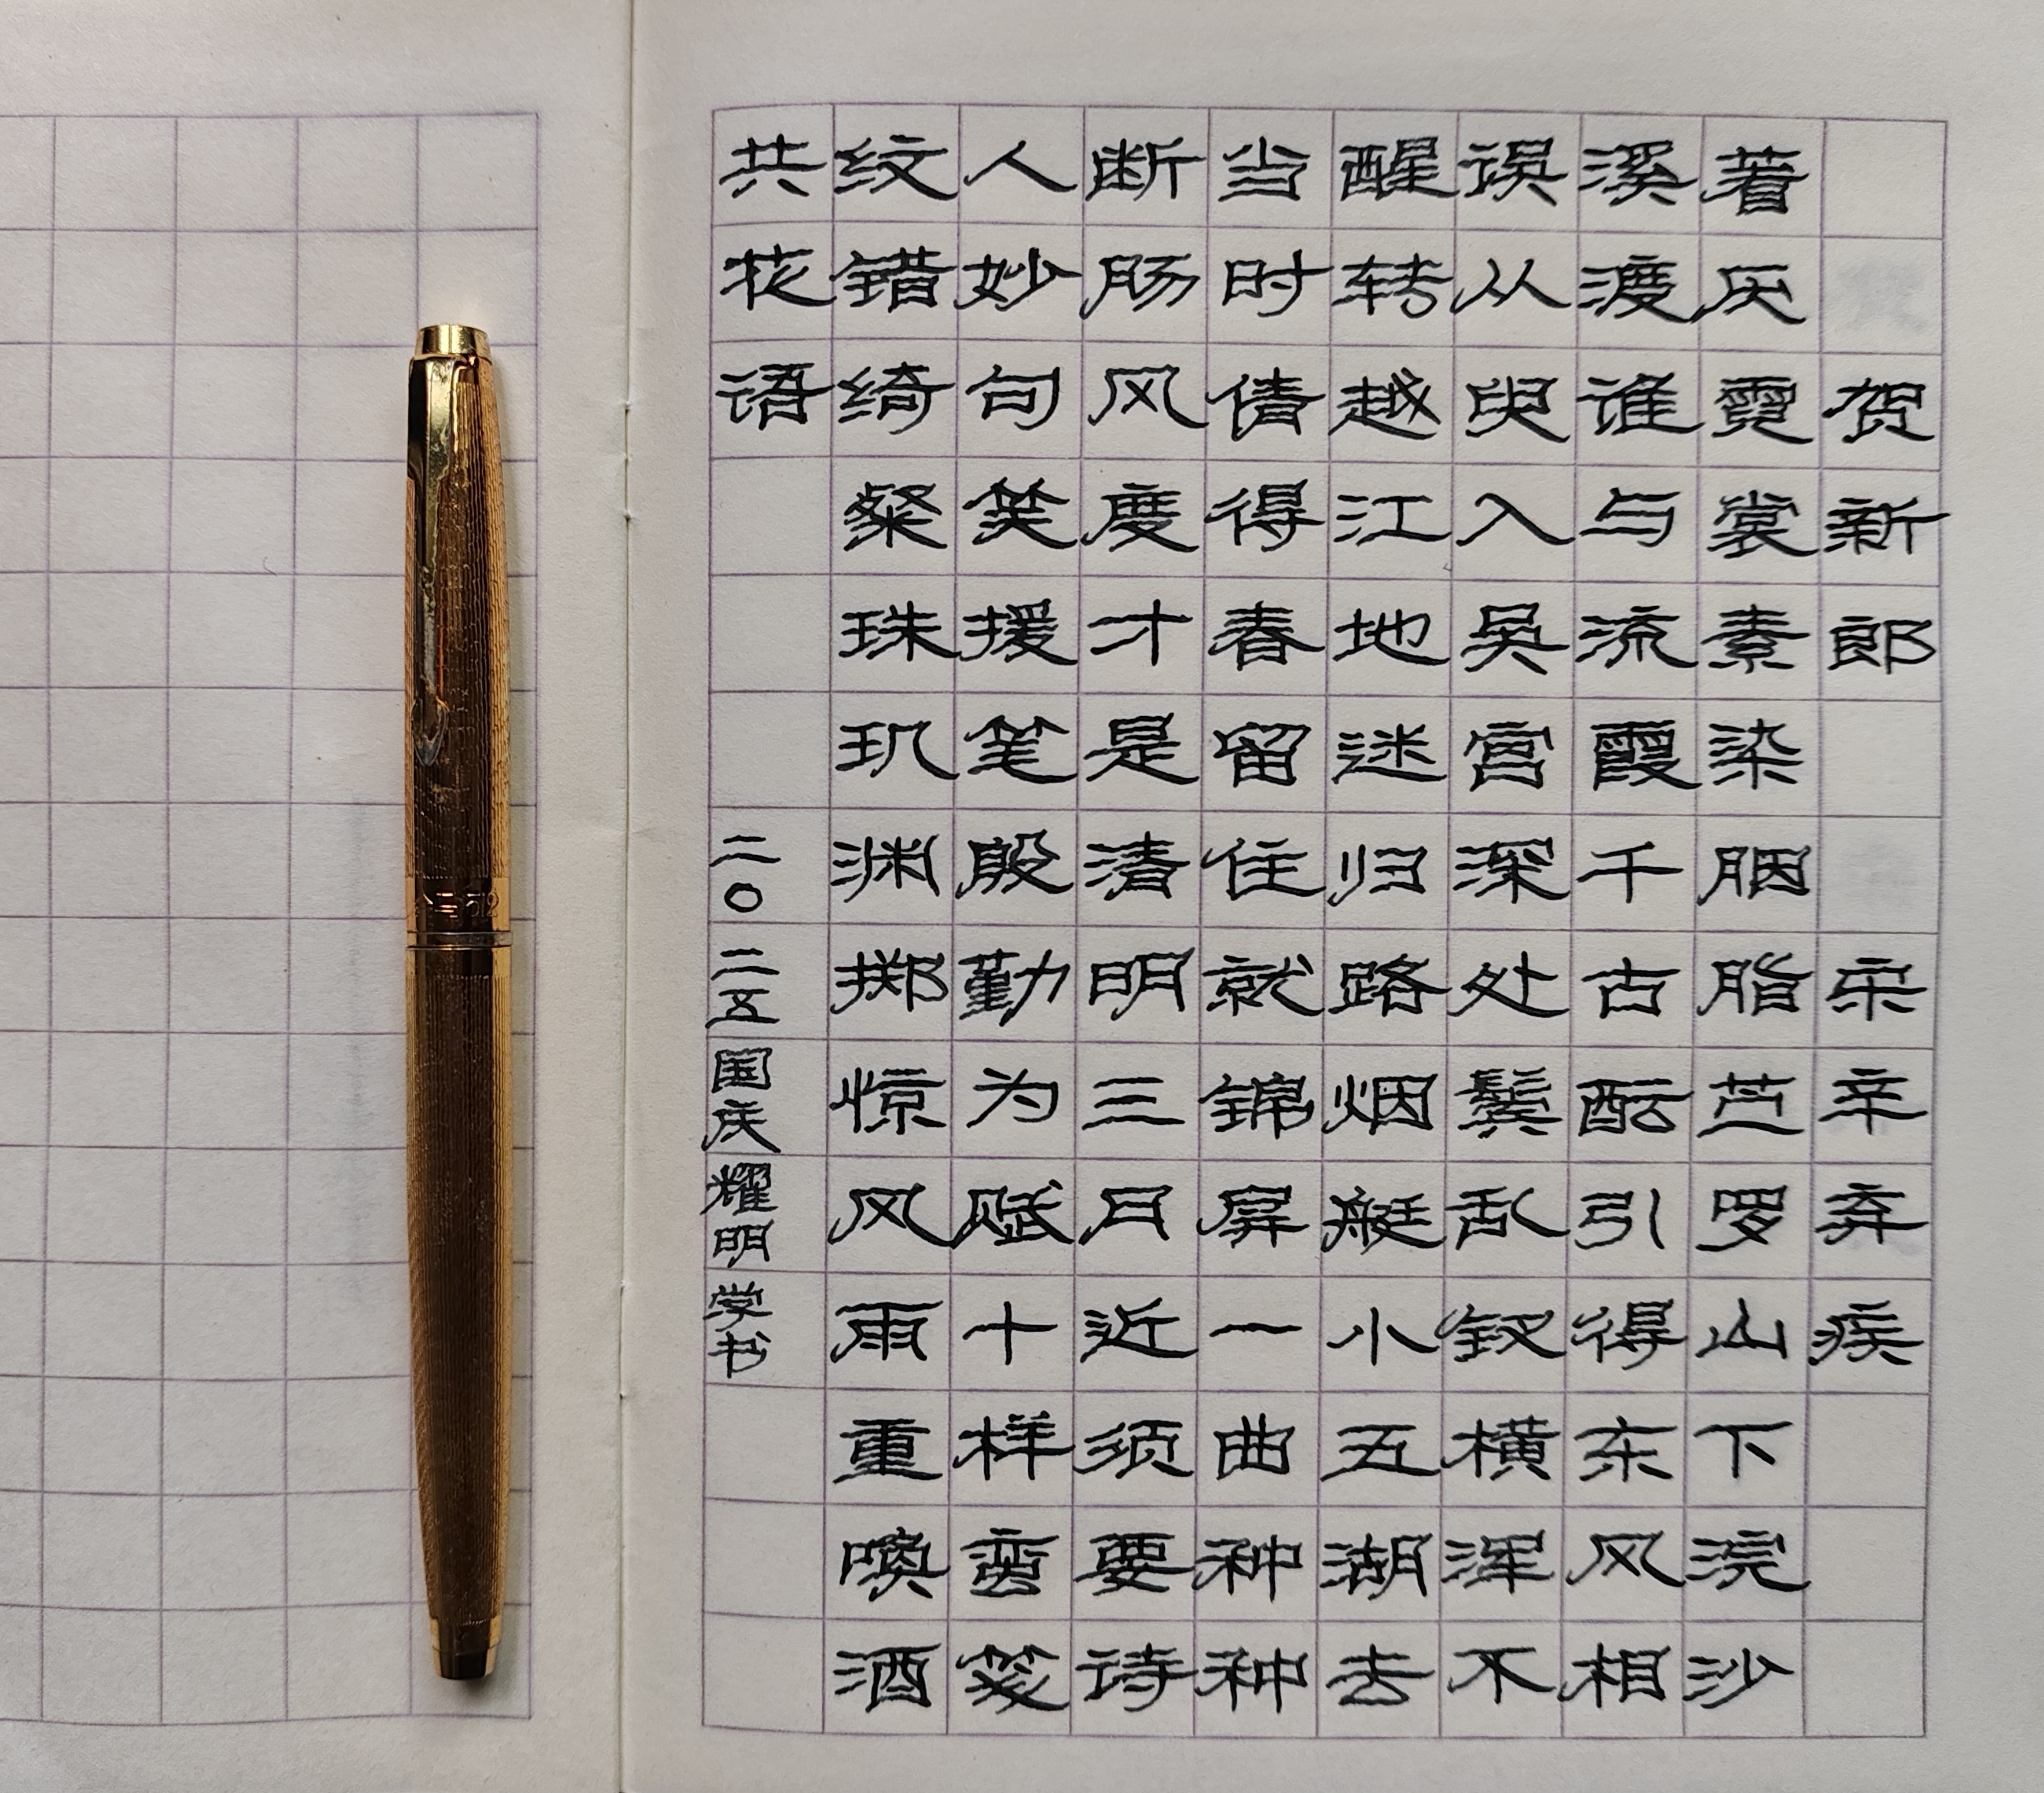 贺新郎 宋辛弃疾
著厌霓裳素染胭脂苎罗山下浣沙
溪渡谁与流霞千古酝引得东风相
误从臾入吴宫深处鬓乱钗横浑不
醒转越江地迷归路烟艇小五湖去
当时倩得春留住就锦屏一曲种种
断肠风度才是清明三月近须要诗
人妙句笑援笔殷勤为赋十样蛮笺
纹错绮粲珠玑渊掷惊风雨重唤酒
共花语
二〇二五国庆耀明学书